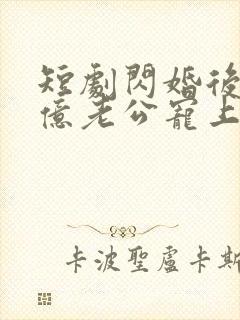 短劇閃婚後
億老公寵上
卡波聖盧卡斯